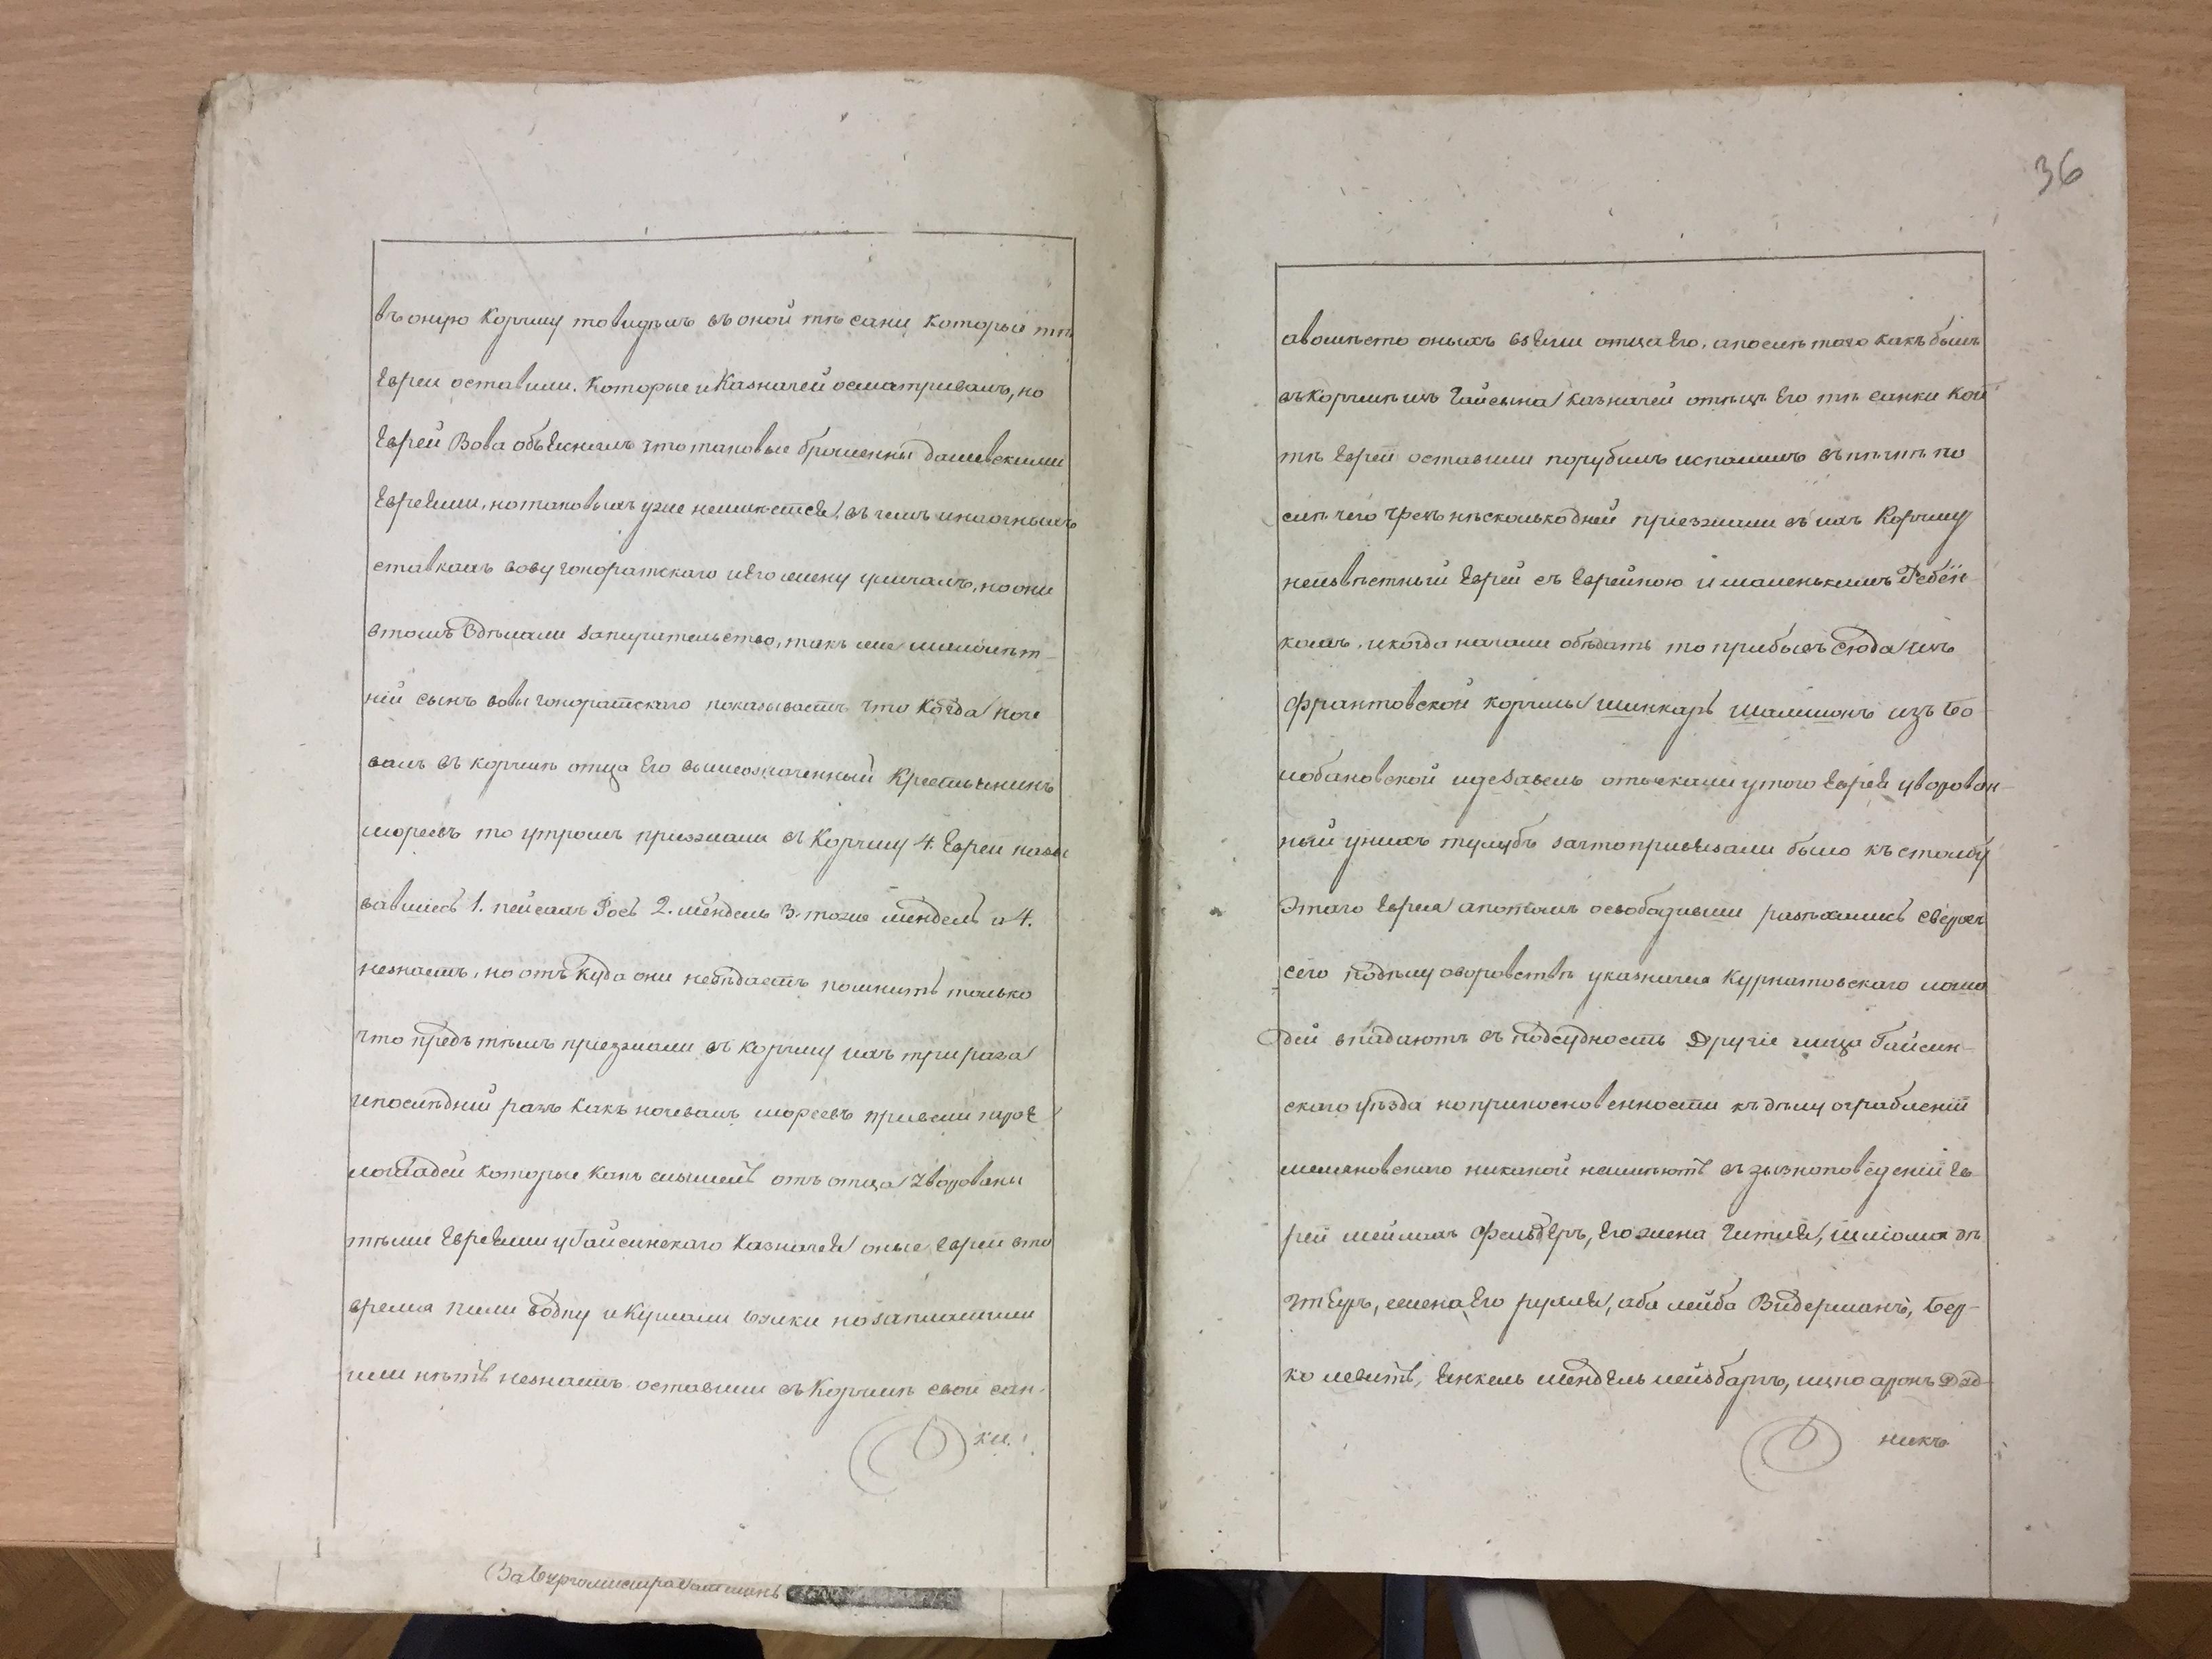 въ оную Корчму то видѣлъ въ оной тѣ сани которые тѣ
Евреи оставили. Которые и Казначей осматривалъ, но
Еврей Вова объяснилъ что таковые брошенны дашевскими
Евреями, но таковыхъ уже неимѣется, въ чемъ и на очныхъ
ставкахъ вову гоноратскаго и Его жену уличалъ, но они
втомъ здѣлали запирательство, такъ же малолѣт-
ній сынъ вовы гоноратскаго показываетъ что Когда ноче
валъ въ корчмѣ отца Его вышеозначенный Крестьянинъ
мореевъ то утромъ приезжали въ Корчму 4. Евреи назы
вавшіесь 1. пейсахъ Рось 2. мендель 3. тоже мендель и 4.
незнаетъ, но отъ куда они невѣдаетъ помнитъ только
что предъ тѣмъ приезжали въ корчму ихъ три раза
и послѣдній разъ какъ ночевалъ мореевъ привели паров
лошадей которые какъ слышелъ отъ отца уворованы
тѣми Евреями у Гайсинскаго Казначея оные Евреи вто
время пили водку и Купили но заплатили
или нѣтъ незнаетъ оставили въ Корчмѣ свои сан-
ки.
За Бургомистра
36
авомѣсто оныхъ взяли отца Его, а послѣ того какъ былъ
въ корчмѣ ихъ Гайсына Казначей отецъ Его тѣ санки кои
тѣ Евреи оставили порубилъ и спалилъ въ печѣ по
слѣ чего чрезъ нѣсколько дней приезжали въ ихъ Корчму
неизвѣстный Еврей съ Еврейкою и маленькимъ Ребён
комъ, и когда начали обѣдать то прибывъ сюда изъ
франтовской корчмы шинкарь шлиомонъ изъ бо
лобановской отыскали у того Еврея уворован-
ный у нихъ тулубъ за что привязали было къ столбу
Этаго Еврея а потомъ освободивши разъехались сверхъ
сего Подѣлу оворовствѣ у казначея Курнатовскаго лоша
дей впадаютъ въ подсудность Другіе лица Гайсин-
скаго уѣзда но прикосновенности къ дѣлу ограбленій
шемяновскаго никакой неимѣютъ Ев-
рей шейлихъ Фельдеръ, Его жена Гитля, шліома дѣ
жена Его рухля, аба лейба Видерманъ, бер-
ко левитъ, Енкель мендель вейзбаргъ, ицко аронъ Дяд-
никъ